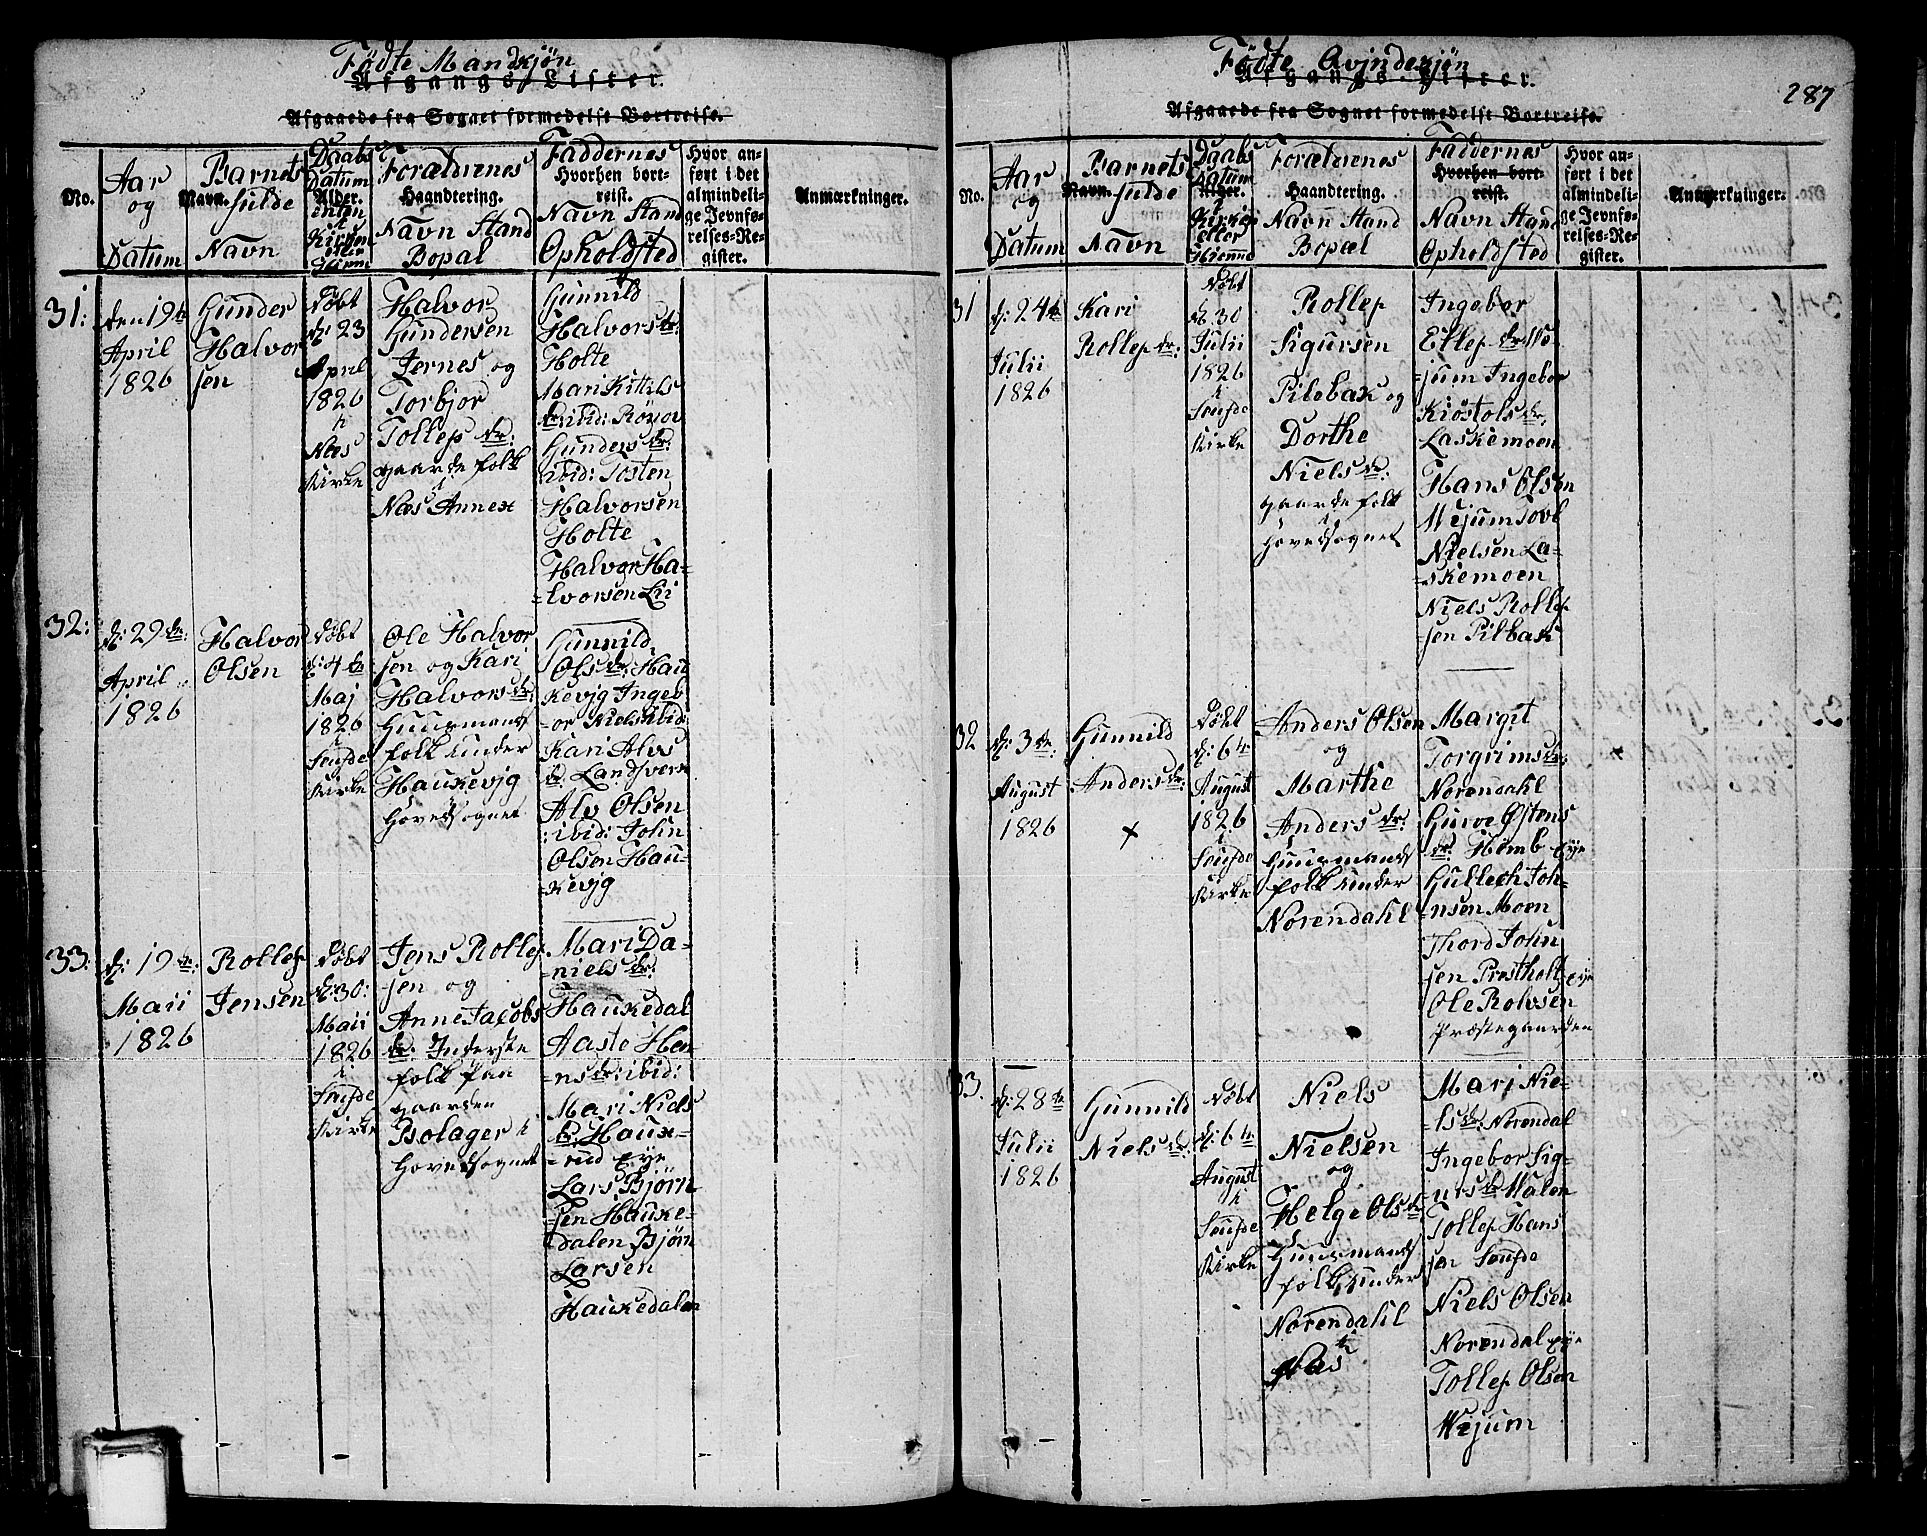 Födte Mandkjön
Afgangs-Lister.
Afgaaede fra Sognet formedelst Bortreise.
No.
Aar
og
Datum
Barnets
Navn. fulde
Navn
Daabs
Datum
Alder.
i
Kirken
eller
Hiemme
Forældrenes
Haandtering.
Navn Stand
Bopæl
Faddernes
Hvorhen bort-
reist.
Navn Stand
Opholdsted
Hvor an-
ført i det
almindeli-
ge Jevnfø-
relses-Re-
gister.
Anmærkninger.
31:
den 19de
April
1826
Gunder
Halvor
sen
döbt
d: 23
April
1826
i
Næs
Kirke
Halvor
Gundersen
Jernes og
Torbjor
Tollefs dr:
gaarde folk
i
Næs Annex
Gunnild
Halvors dr:
Holte
Mari Kittils
dr ibid: Rönov
Gunders dr:
ibid: Tosten
Halvorsen
Holte
Halvor Ha-
-lvorsen Lii
32:
d: 29de:
April
1826
Halvor
Olsen
döbt
d: 4de
Maj
1826
i
Soufde
Kirke
Ole Halvor
sen og Kari
Halvors dr:
Huusmands
folk under
Haukevjg
Hovedsognet
Gunnild
Ols dr: Hau
kevjg Ingeb
-or Niels ibid:
Kari Alvs
dr Landsverk
Alv Olsen
:ibid: John
Olsen Hau-
-kevjg
33:
d: 19de:
Maii
1826
Rollef
Jensen
döbt
d: 30:
Maii
1826
i
Soufde
Kirke
Jens Rollef
sen og
Anne Jacobs
dr: Inderste
folk paa
gaarden
Bolager i
Hovedsognet
Mari Da-
-niels dr:
Haukedal
Aaste Hen
-ns dr: ibid:
Mari Niels
dr: Hauk-
-rud eye
Lars Björn
-sen Hauke-
dalen Bjørn
Larsen
Haukedalen
Födte Qvindekjön
287
Afgangs-Lister.
Afgaaede fra Sognet formedelst Bortreise.
No.
Aar
og
Datum
Barnets
Navn. fulde
Navn
Daabs
Datum
Alder.
i
Kirken
eller
Hiemme
Forældrenes
Haandtering.
Navn Stand
Bopæl
Faddernes
Hvorhen bort-
reist.
Navn Stand
Opholdsted
Hvor an-
ført i det
almindeli-
ge Jevnfø-
relses-Re-
gister.
Anmærkninger.
31
d: 24de
Julii
1826
Kari
Rollefs dr:
Döbt
d: 30
Julii
1826
i
Soufde
Kirke
Rollef
Sigursen
Pilebak og
Dorthe
Niels dr:
gaarde folk
i
Hovedsognet
Ingebor
Ellefs dr: We
-jum Ingebor
Kiöstols dr:
Laskemoen
Hans Olsen
Wejum Tovl
Nielsen La-
-skemoen
Niels Rollef
sen Pilbak
32
d: 3de:
August
1826
Gunnild
Anders dr:
x
Döbt
d: 6te
August
1826
i
Soufde
Kirke
Anders Olsen
og
Marthe
Anders dr:
Huusmands
folk under
Norendahl
Margit
Torgrims dr:
Norendahl
Gurve Østens
dr: Homb eye
Gullech Joh-
-nsen Moen
Thord John
sen Prestholt eye
Ole Rolvsen
Præstegaarden
33.
d: 28de
Julii
1826
Gunnild
Niels dr:
Döbt
d: 6te
August
i
Soufde
Kirke
Niels
Nielsen
og
Helge Ols dr
Huusmands
folk under
Norendahl
i
Næs
Mari Nie-
-ls dr: Norendal
Ingebor Sig-
-urs dr Malen
Tollef Hans
sen Soufde
Niels Olsen
Norendal eye
Tollef Olsen
Wejum